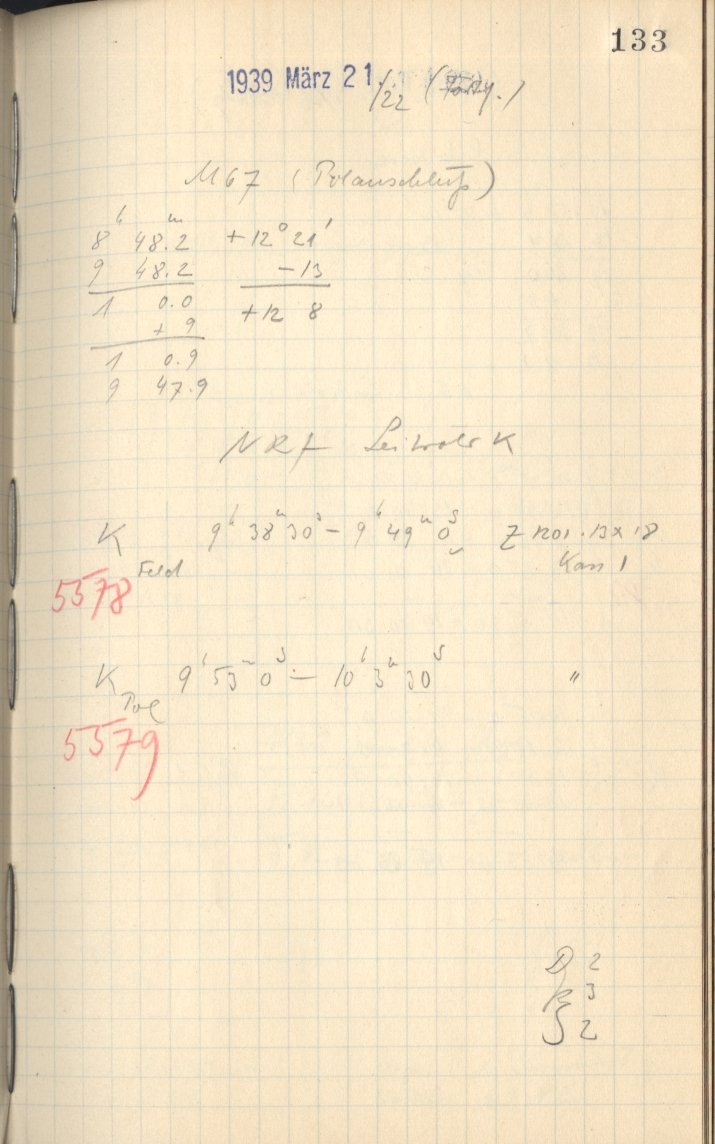 133
1939 März 21./22 (
M67 (Polanschluß)
8ʰ 48.2ᵐ +12° 21'
9 48.2 -13
1 0.0 +12 8
+ 9
1 0.9
9 47.9
K 9ʰ 38ᵐ 30ˢ – 9ʰ 49ᵐ 0ˢ Z 1201 . 13x18
Feld Kass 1
5578
K 9ʰ 53ᵐ 0ˢ – 10ʰ 3ᵐ 30ˢ "
Pol
5579
D 2
3
2